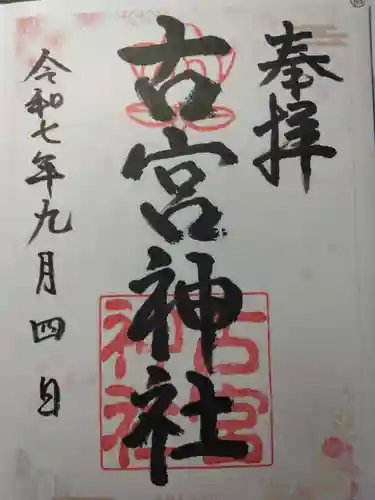 奉拝
古宮神社
古宮
神社
令和七年九月四日